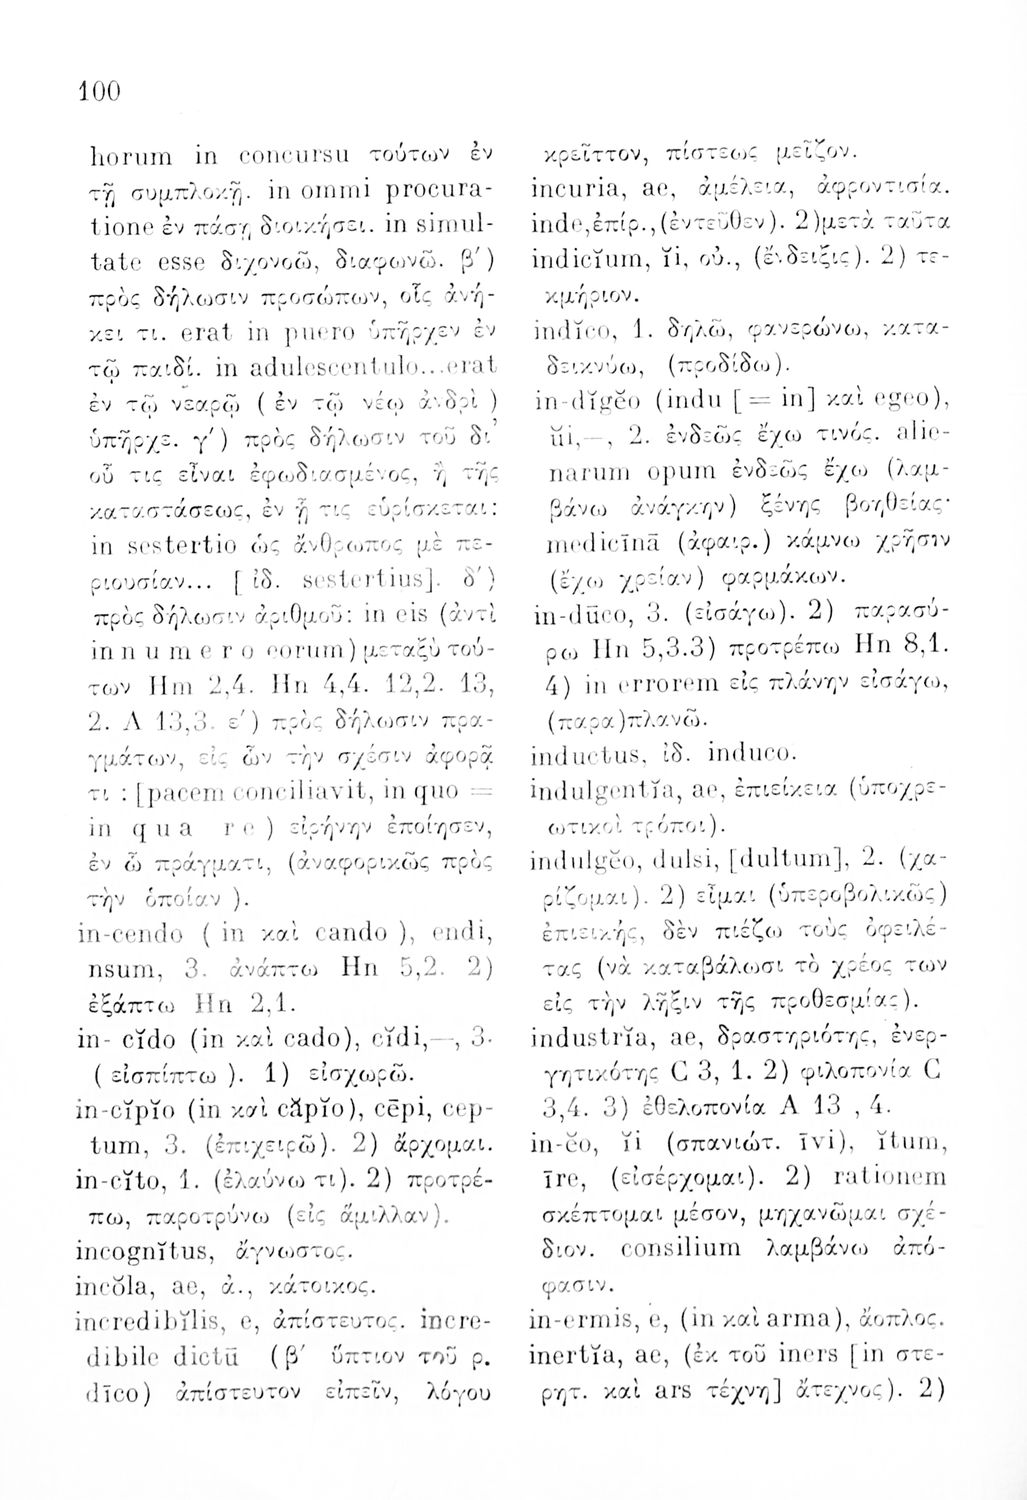 100
horum in concursu τούτων ἐν
τῇ συμπλοκῇ. in omni procura-
tione ἐν πάσῃ διοικήσει. in simul-
tate esse διχονοῶ, διαφωνῶ. β′)
πρὸς δήλωσιν προσώπων, οἷς ἀνή-
κει τι. erat in puero ὑπῆρχεν ἐν
τῷ παιδί. in adulescentulo...erat
ἐν τῷ νεαρῷ ( ἐν τῷ νέῳ ἀνδρὶ )
ὑπῆρχε. γ′) πρὸς δήλωσιν τοῦ δι᾿
οὗ τις εἶναι ἐφωδιασμένος, ἢ τῆς
καταστάσεως, ἐν ᾗ τις εὑρίσκεται:
in sestertio ὡς ἄνθρωπος μὲ πε-
ριουσίαν... [ ἰδ. sestertius]. δ′)
πρὸς δήλωσιν ἀριθμοῦ: in eis (ἀντὶ
in n u m e r o eorum) μεταξὺ τού-
των Hm 2,4. Hn 4,4. 12,2. 13,
2. A 13,3. ε′) πρὸς δήλωσιν πρα-
γμάτων, εἰς ὧν τὴν σχέσιν ἀφορᾷ
τι : [pacem conciliavit, in quo =
in q u a r e ) εἰρήνην ἐποίησεν,
ἐν ᾧ πράγματι, (ἀναφορικῶς πρὸς
τὴν ὁποίαν ).
in-cendo ( in καὶ cando ), endi,
nsum, 3. ἀνάπτω Hn 5,2. 2)
ἐξάπτω Hn 2,1.
in- cĭdo (in καὶ cado), cĭdi,—, 3.
( εἰσπίπτω ). 1) εἰσχωρῶ.
in-cĭpĭo (in καὶ căpĭo), cēpi, cep-
tum, 3. (ἐπιχειρῶ). 2) ἄρχομαι.
in-cĭto, 1. (ἐλαύνω τι). 2) προτρέ-
πω, παροτρύνω (εἰς ἅμιλλαν).
incognĭtus, ἄγνωστος.
incŏla, ae, ἀ., κάτοικος.
incredibĭlis, e, ἀπίστευτος. incre-
dibile dictū (β′ ὕπτιον τοῦ ρ.
dīco) ἀπίστευτον εἰπεῖν, λόγου
κρεῖττον, πίστεως μεῖζον.
incuria, ae, ἀμέλεια, ἀφροντισία.
inde,ἐπίρ.,(ἐντεῦθεν). 2)μετὰ ταῦτα
indicĭum, ĭi, οὐ., (ἔνδειξις). 2) τε-
κμήριον.
indĭco, 1. δηλῶ, φανερώνω, κατα-
δεικνύω, (προδίδω).
in-dĭgĕo (indu [ = in] καὶ egeo),
ŭi,—, 2. ἐνδεῶς ἔχω τινός. alie-
narum opum ἐνδεῶς ἔχω (λαμ-
βάνω ἀνάγκην) ξένης βοηθείας·
medicīnā (ἀφαιρ.) κάμνω χρῆσιν
(ἔχω χρείαν) φαρμάκων.
in-dūco, 3. (εἰσάγω). 2) παρασύ-
ρω Hn 5,3.3) προτρέπω Hn 8,1.
4) in errorem εἰς πλάνην εἰσάγω,
(παρα)πλανῶ.
inductus, ἰδ. induco.
indulgentĭa, ae, ἐπιείκεια (ὑποχρε-
ωτικοὶ τρόποι).
indulgĕo, dulsi, [dultum], 2. (χα-
ρίζομαι). 2) εἶμαι (ὑπερβολικῶς)
ἐπιεικής, δὲν πιέζω τοὺς ὀφειλέ-
τας (νὰ καταβάλωσι τὸ χρέος των
εἰς τὴν λῆξιν τῆς προθεσμίας).
industrĭa, ae, δραστηριότης, ἐνερ-
γητικότης C 3, 1. 2) φιλοπονία C
3,4. 3) ἐθελοπονία A 13 , 4.
in-ĕo, ĭi (σπανιώτ. īvi), ĭtum,
īre, (εἰσέρχομαι). 2) rationem
σκέπτομαι μέσον, μηχανῶμαι σχέ-
διον. consilium λαμβάνω ἀπό-
φασιν.
in-ermis, e, (in καὶ arma), ἄοπλος.
inertĭa, ae, (ἐκ τοῦ iners [in στε-
ρητ. καὶ ars τέχνη] ἄτεχνος). 2)